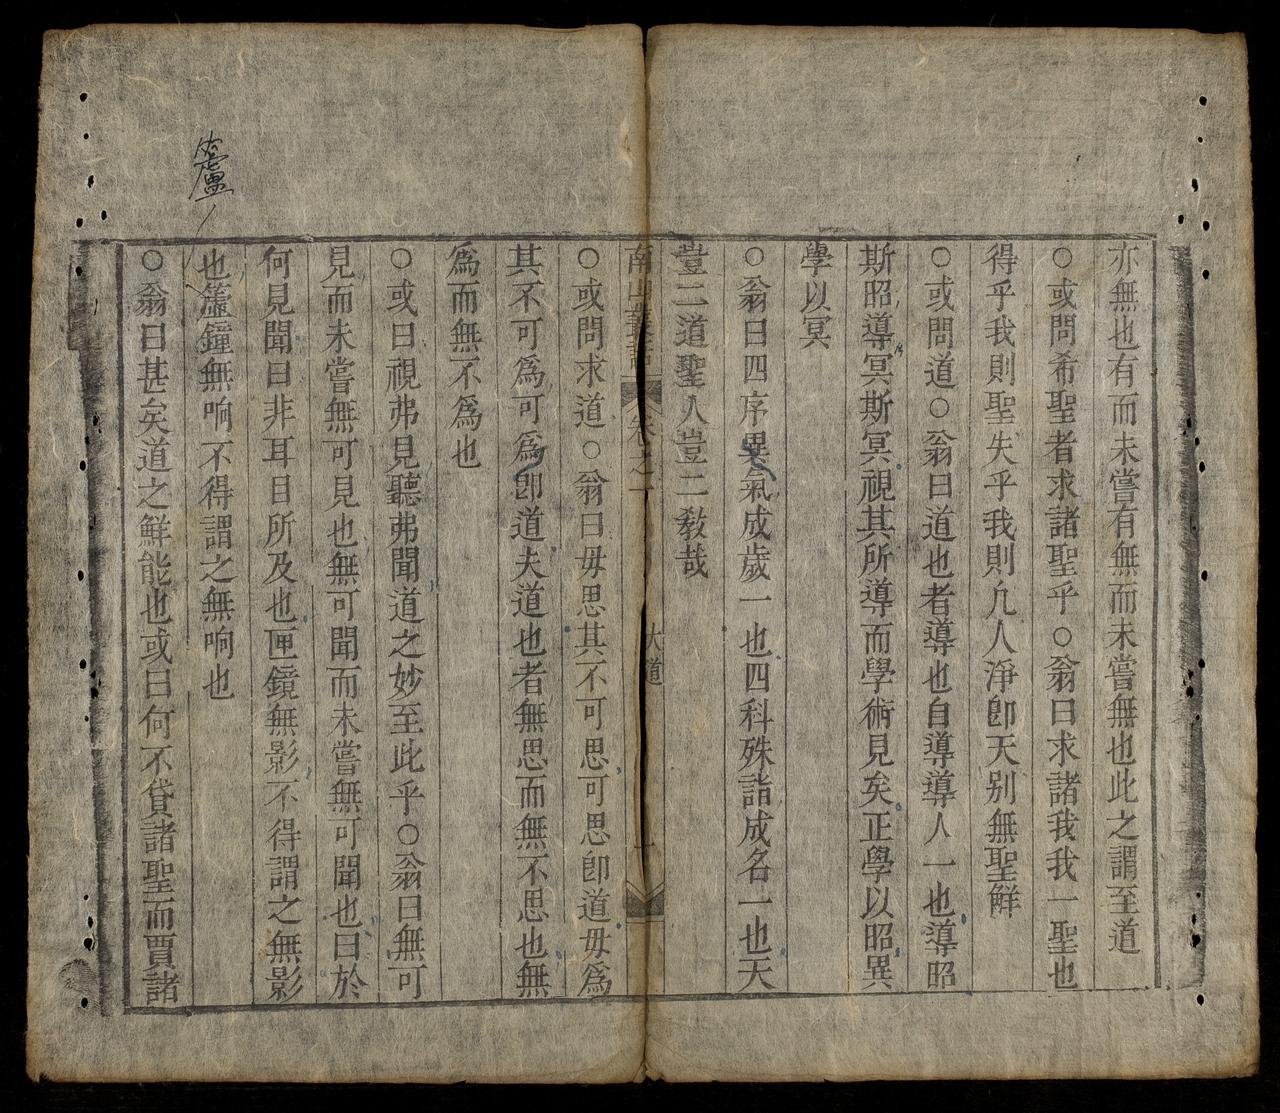 亦無也有而未嘗有無而未嘗無也此之謂至道
○或問希聖者求諸聖乎○翁曰求諸我我一聖也
得乎我則聖失乎我則凢人淨卽天别無聖鮮
○或問道○翁曰道也者導也自導導人一也導昭
斯昭導冥斯冥視其所導而學術見矣正學以昭異
學以冥
○翁曰四序異氣成歲一也四科殊詣成名一也天
豈二道聖人豈二敎哉
南山叢語 卷之一 大道 一
○或問求道○翁曰毋思其不可思可思卽道毋爲
其不可爲可爲卽道夫道也者無思而無不思也無
爲而無不爲也
○或曰視弗見聽弗聞道之妙至此乎○翁曰無可
見而未嘗無可見也無可聞而未嘗無可聞也曰於
何見聞曰非耳目所及也匣鏡無影不得謂之無影
也簴鐘無响不得謂之無响也
○翁曰甚矣道之鮮能也或曰何不貸諸聖而賈諸